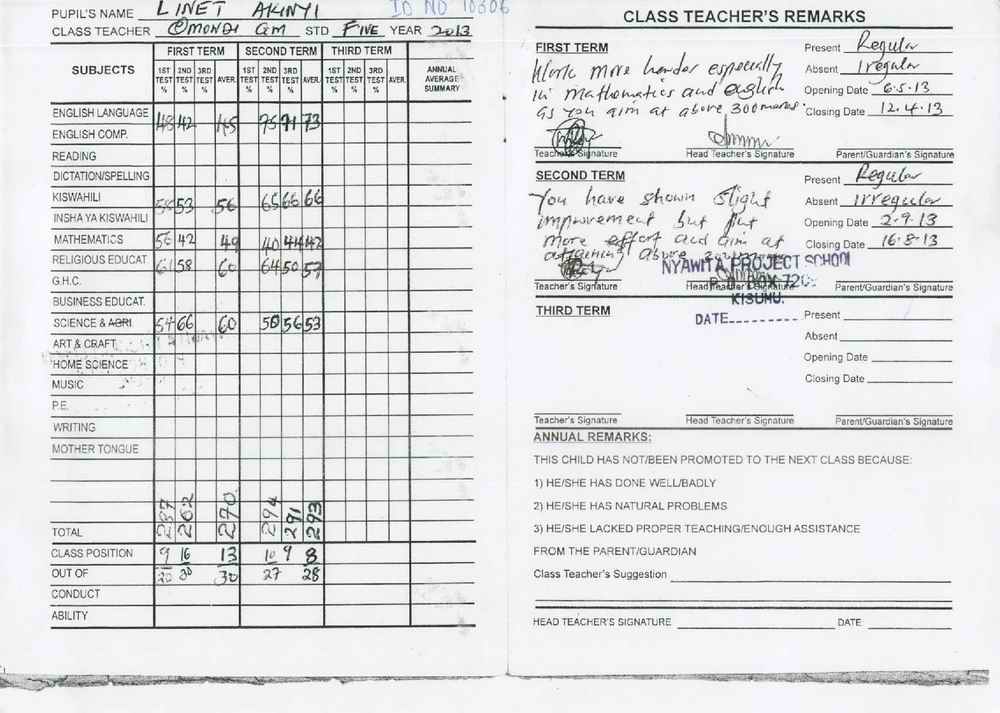 PUPIL'S NAME LINET AKINYI ID NO 10806
CLASS TEACHER OMONDI GM STD FIVE YEAR 2013
SUBJECTS FIRST TERM SECOND TERM THIRD TERM
1ST TEST % 2ND TEST % 3RD TEST % AVER. 1ST TEST % 2ND TEST % 3RD TEST % AVER. 1ST TEST % 2ND TEST % 3RD TEST % AVER. ANNUAL AVERAGE SUMMARY
ENGLISH LANGUAGE 48 42 45 75 71 73
ENGLISH COMP.
READING
DICTATION/SPELLING
KISWAHILI 53 56 65 66 66
INSHA YA KISWAHILI
MATHEMATICS 56 42 49 40 44 42
RELIGIOUS EDUCAT 61 58 60 64 50 57
G.H.C.
BUSINESS EDUCAT.
SCIENCE & AGRI 54 66 60 50 56 53
ART & CRAFT
HOME SCIENCE
MUSIC
P.E.
WRITING
MOTHER TONGUE
TOTAL 287 262 270 294 291 293
CLASS POSITION 9 16 13 10 9 8
OUT OF 30 30 27 28
CONDUCT
ABILITY
CLASS TEACHER'S REMARKS
FIRST TERM
Work more harder especially
in mathematics and english
as you aim at above 300 marks.
Present Regular
Absent Irregular
Opening Date 6.5.13
Closing Date 12.4.13
Teacher's Signature Head Teacher's Signature Parent/Guardian's Signature
SECOND TERM
You have shown slight
improvement but put
more effort and aim at
attaining above
Present Regular
Absent Irregular
Opening Date 2.9.13
Closing Date 16.8.13
NYAWITA PROJECT SCHOOL
P. O. BOX
KISUMU.
DATE
Teacher's Signature Head Teacher's Signature Parent/Guardian's Signature
THIRD TERM
Present
Absent
Opening Date
Closing Date
Teacher's Signature Head Teacher's Signature Parent/Guardian's Signature
ANNUAL REMARKS:
THIS CHILD HAS NOT/BEEN PROMOTED TO THE NEXT CLASS BECAUSE:
1) HE/SHE HAS DONE WELL/BADLY
2) HE/SHE HAS NATURAL PROBLEMS
3) HE/SHE LACKED PROPER TEACHING/ENOUGH ASSISTANCE
FROM THE PARENT/GUARDIAN
Class Teacher's Suggestion
HEAD TEACHER'S SIGNATURE DATE